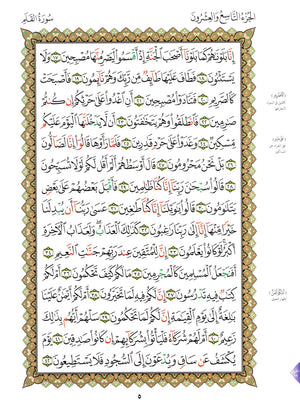 الجزء التاسع والعشرون سورة القلم
إِنَّا بَلَوْنَٰهُمْ كَمَا بَلَوْنَآ أَصْحَٰبَ ٱلْجَنَّةِ إِذْ أَقْسَمُوا۟ لَيَصْرِمُنَّهَا مُصْبِحِينَ ١٧ وَلَا
يَسْتَثْنُونَ ١٨ فَطَافَ عَلَيْهَا طَآئِفٌ مِّن رَّبِّكَ وَهُمْ نَآئِمُونَ ١٩ فَأَصْبَحَتْ
كَٱلصَّرِيمِ ٢٠ فَتَنَادَوْا۟ مُصْبِحِينَ ٢١ أَنِ ٱغْدُوا۟ عَلَىٰ حَرْثِكُمْ إِن كُنتُمْ
صَٰرِمِينَ ٢٢ فَٱنطَلَقُوا۟ وَهُمْ يَتَخَٰفَتُونَ ٢٣ أَن لَّا يَدْخُلَنَّهَا ٱلْيَوْمَ عَلَيْكُم
مِّسْكِينٌ ٢٤ وَغَدَوْا۟ عَلَىٰ حَرْدٍ قَٰدِرِينَ ٢٥ فَلَمَّا رَأَوْهَا قَالُوٓا۟ إِنَّا لَضَآلُّونَ
٢٦ بَلْ نَحْنُ مَحْرُومُونَ ٢٧ قَالَ أَوْسَطُهُمْ أَلَمْ أَقُل لَّكُمْ لَوْلَا تُسَبِّحُونَ
٢٨ قَالُوا۟ سُبْحَٰنَ رَبِّنَآ إِنَّا كُنَّا ظَٰلِمِينَ ٢٩ فَأَقْبَلَ بَعْضُهُمْ عَلَىٰ بَعْضٍ
يَتَلَٰوَمُونَ ٣٠ قَالُوا۟ يَٰوَيْلَنَآ إِنَّا كُنَّا طَٰغِينَ ٣١ عَسَىٰ رَبُّنَآ أَن يُبْدِلَنَا
خَيْرًا مِّنْهَآ إِنَّآ إِلَىٰ رَبِّنَا رَٰغِبُونَ ٣٢ كَذَٰلِكَ ٱلْعَذَابُ وَلَعَذَابُ ٱلْءَاخِرَةِ
أَكْبَرُ لَوْ كَانُوا۟ يَعْلَمُونَ ٣٣ إِنَّ لِلْمُتَّقِينَ عِندَ رَبِّهِمْ جَنَّٰتِ ٱلنَّعِيمِ ٣٤
أَفَنَجْعَلُ ٱلْمُسْلِمِينَ كَٱلْمُجْرِمِينَ ٣٥ مَا لَكُمْ كَيْفَ تَحْكُمُونَ ٣٦ أَمْ لَكُمْ
كِتَٰبٌ فِيهِ تَدْرُسُونَ ٣٧ إِنَّ لَكُمْ فِيهِ لَمَا تَخَيَّرُونَ ٣٨ أَمْ لَكُمْ أَيْمَٰنٌ عَلَيْنَا
بَٰلِغَةٌ إِلَىٰ يَوْمِ ٱلْقِيَٰمَةِ إِنَّ لَكُمْ لَمَا تَحْكُمُونَ ٣٩ سَلْهُمْ أَيُّهُم بِذَٰلِكَ
زَعِيمٌ ٤٠ أَمْ لَهُمْ شُرَكَآءُ فَلْيَأْتُوا۟ بِشُرَكَآئِهِمْ إِن كَانُوا۟ صَٰدِقِينَ ٤١ يَوْمَ
يُكْشَفُ عَن سَاقٍ وَيُدْعَوْنَ إِلَى ٱلسُّجُودِ فَلَا يَسْتَطِيعُونَ ٤٢
٥